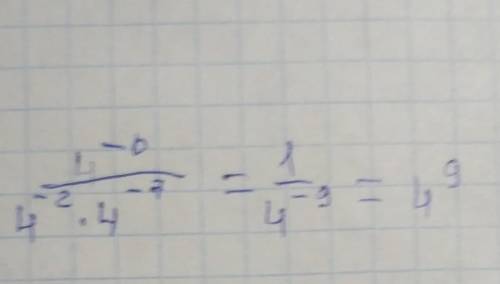 4^{-0} / (4^{-2} · 4^{-7}) = 1 / 4^{-9} = 4^9